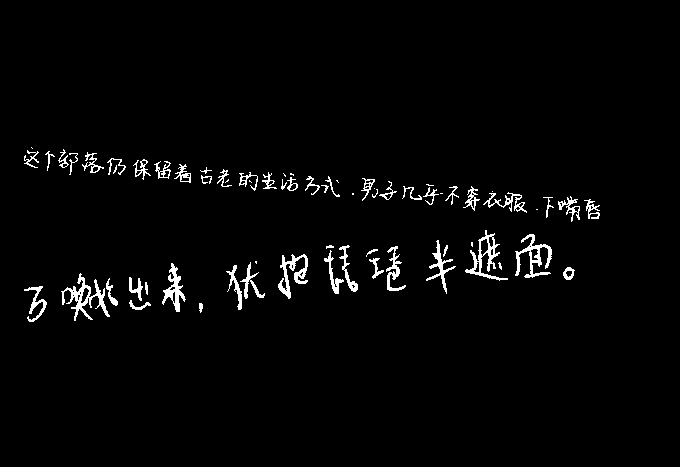 这个部落仍保留着古老的生活方式.男子几乎不穿衣服.下嘴唇
万唤出来,犹抱琵琶半遮面。